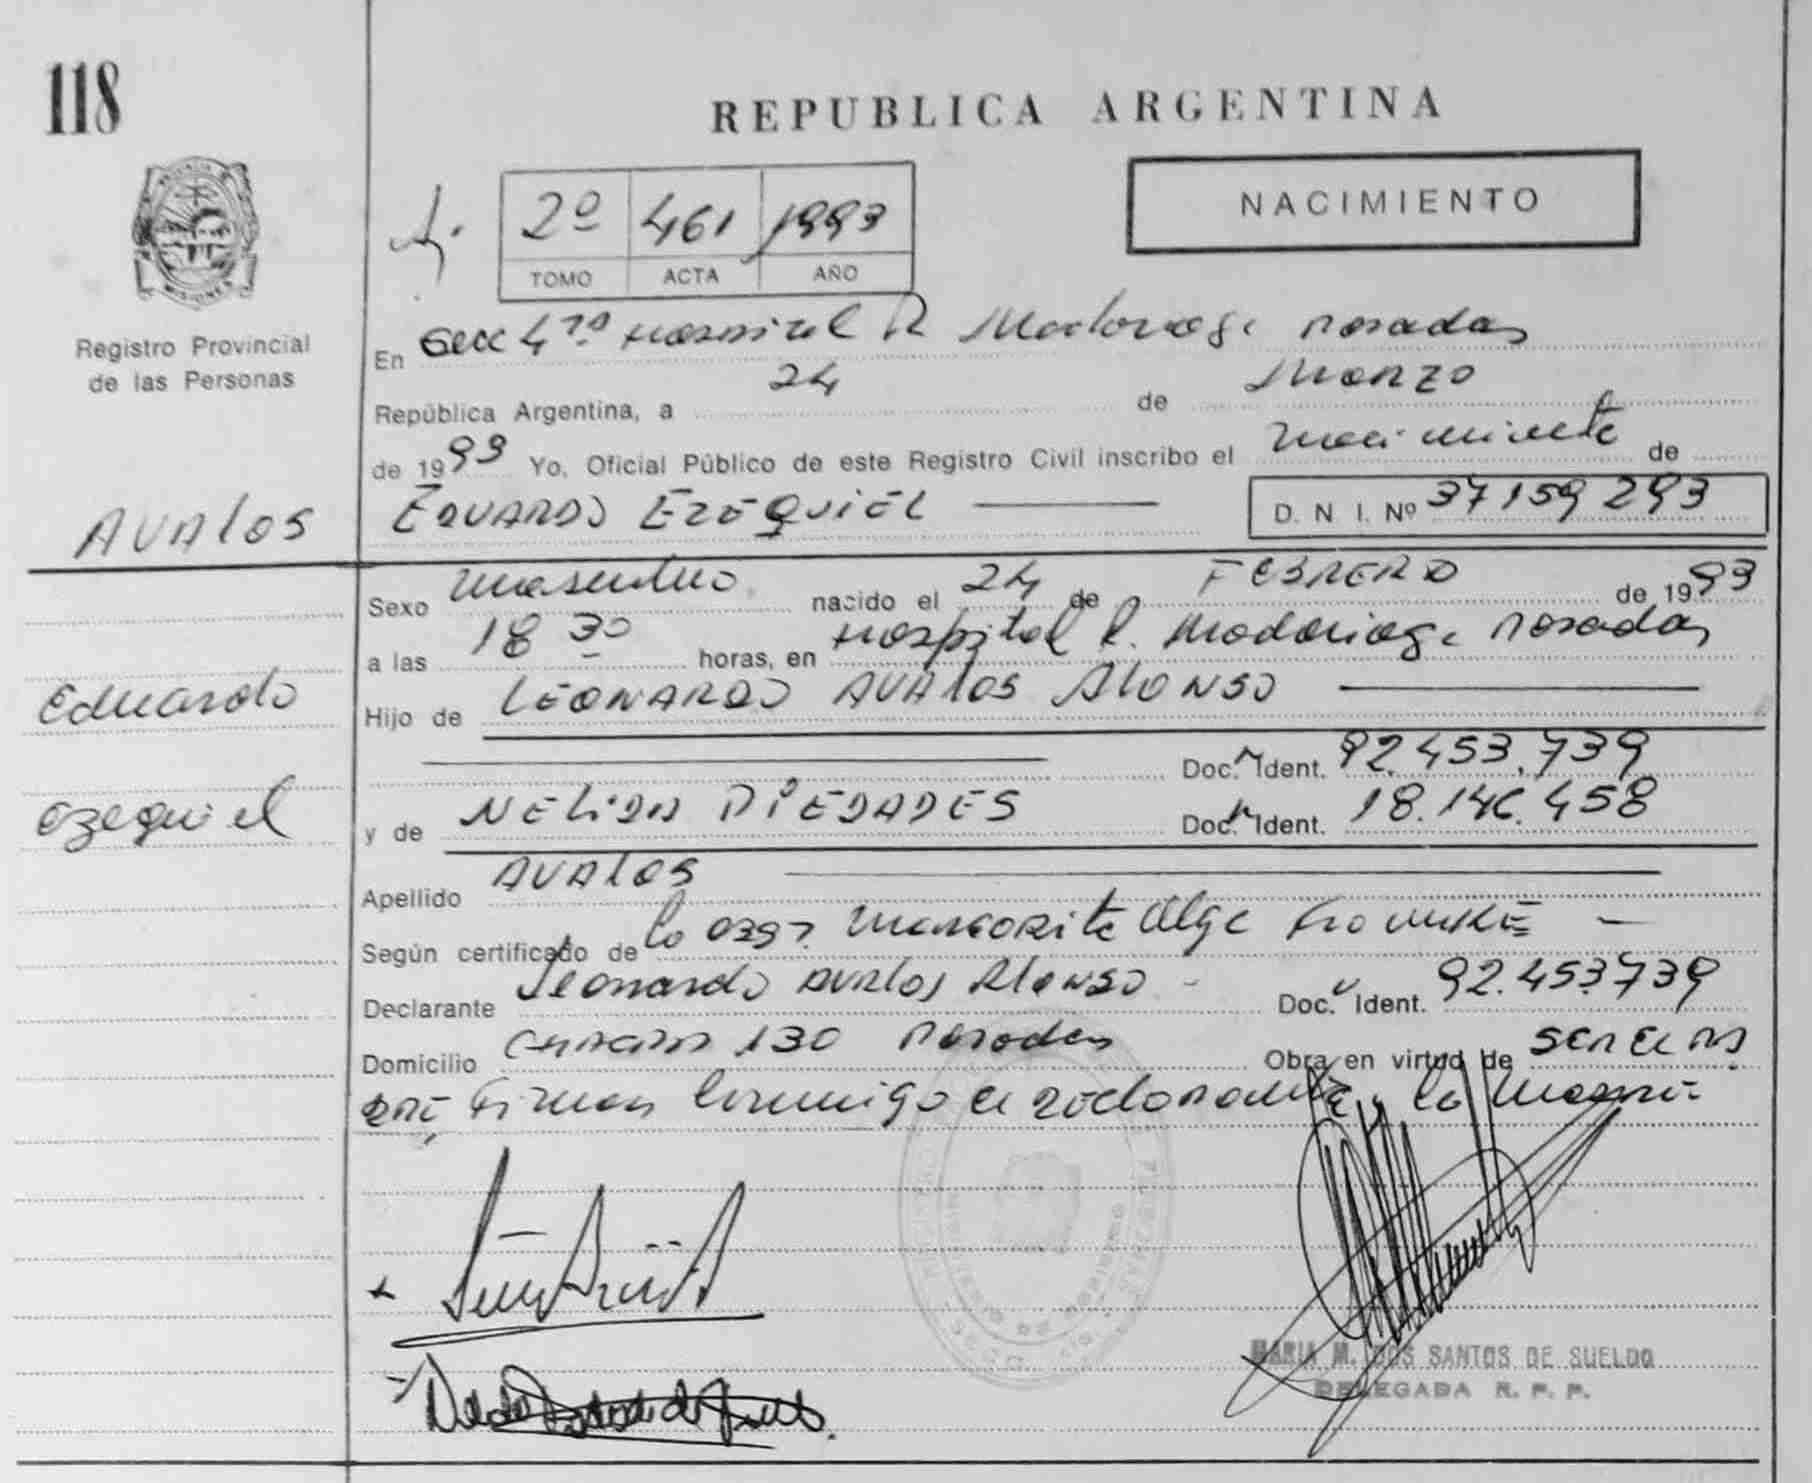 118
REPUBLICA ARGENTINA
NACIMIENTO
2º 461 1993
TOMO ACTA AÑO
PROVINCIA DE MISIONES
Registro Provincial
de las Personas
En Secc 4ta Hospital R Madariaga Posadas
República Argentina, a 24 de Marzo
de 1993 Yo, Oficial Público de este Registro Civil inscribo el nacimiento de
AVAlos
EDUARDO EZEQUIEL D. N. I. Nº 37159293
Sexo masculino nacido el 24 de FEBRERO de 1993
a las 18 30 horas, en Hospital R. Madariaga Posadas
Eduardo
Hijo de LEONARDO AVAlos AlONSO
Doc. Ident. 92.453.739
Ezequiel
y de NELIDA PIEDADES Doc. Ident. 18.146.458
Apellido AVAlos
Según certificado de la Margarita Olga
Declarante Leonardo Avalos Alonso Doc. Ident. 92.453.739
Domicilio 130 Posadas Obra en virtud de
Firman conmigo el declarante y la
MARIA M. DOS SANTOS DE SUELDO
DELEGADA R. P. P.